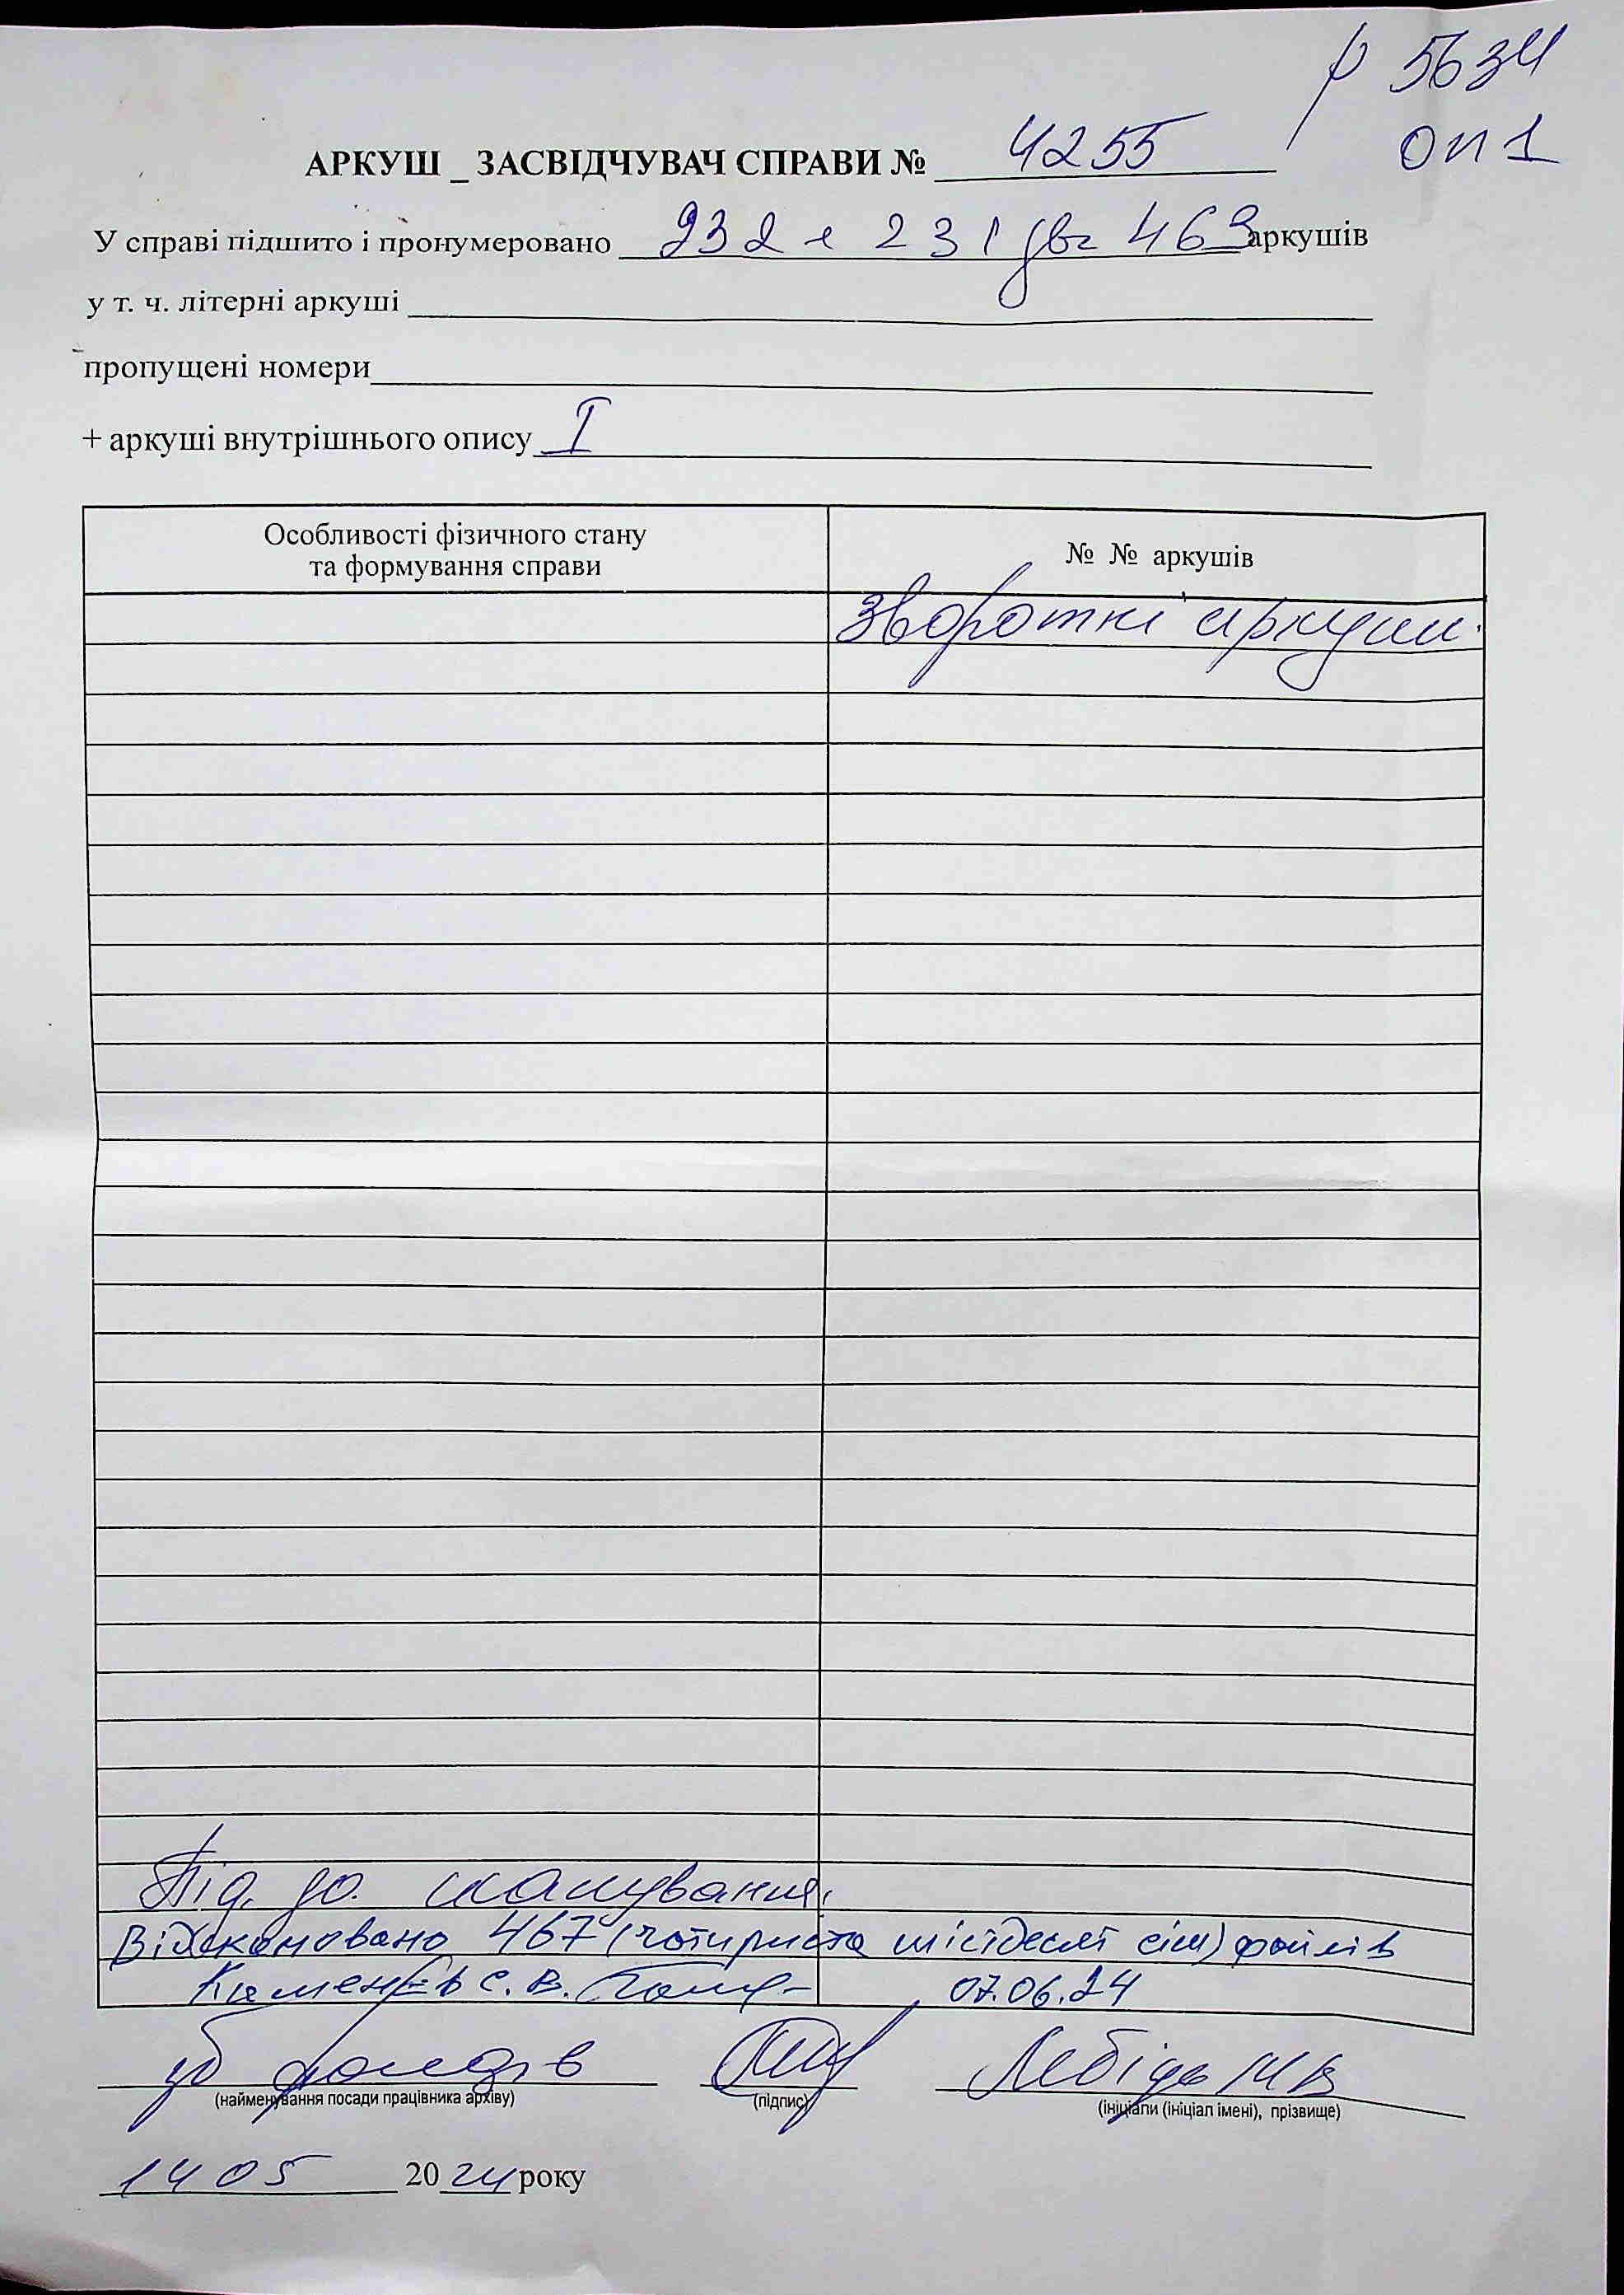 р 5634
оп 1
АРКУШ _ ЗАСВІДЧУВАЧ СПРАВИ № 4255
У справі підшито і пронумеровано 232 + 231 зв = 463 аркушів
у т. ч. літерні аркуші
пропущені номери
+ аркуші внутрішнього опису I
Особливості фізичного стану
та формування справи
№ № аркушів
зворотні аркуші.
Під. до. сканування.
Відскановано 467 (чотириста шістдесят сім) файлів
С. В. 07.06.24
фондів Лебідь М В
(найменування посади працівника архіву) (підпис) (ініціали (ініціал імені), прізвище)
14 05 2024 року